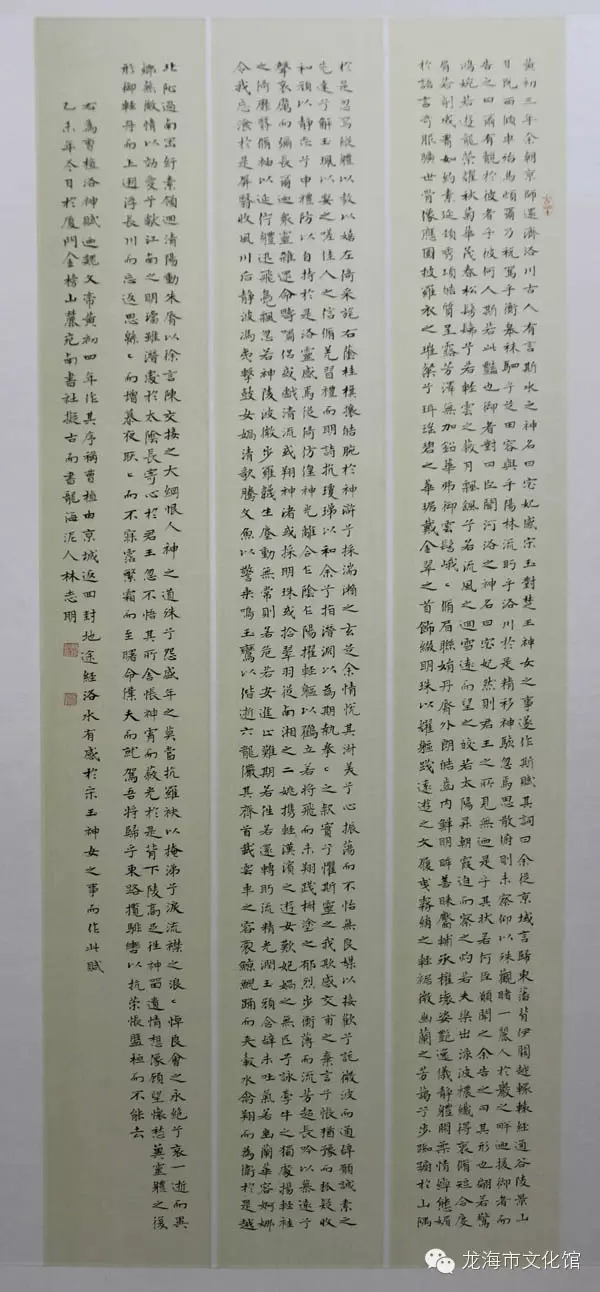 黄初三年余朝京師還濟洛川古人有言斯水之神名曰宓妃感宋玉對楚王神女之事遂作斯賦其詞曰余從京域言歸東藩背伊闕越轘轅經通谷陵景山
日既西傾車殆馬煩爾乃税駕乎衡皋秣駟乎芝田容與乎陽林流眄乎洛川於是精移神駭忽焉思散俯則未察仰以殊觀睹一麗人於巖之畔迺援御者而
告之曰爾有覿於彼者乎彼何人斯若此豔也御者對曰臣聞河洛之神名曰宓妃然則君王之所見無迺是乎其狀若何臣願聞之余告之曰其形也翩若驚
鴻婉若遊龍榮曜秋菊華茂春松髣髴兮若輕雲之蔽月飄颻兮若流風之迴雪遠而望之皎若太陽昇朝霞迫而察之灼若夫蕖出淥波襛纖得衷脩短合度
肩若削成腰如約素延頸秀項皓質呈露芳澤無加鉛華弗御雲髻峨〻脩眉聯娟丹脣外朗皓齒内鮮明眸善睞靨輔承權瓌姿艷逸儀靜體閑柔情綽態媚
於語言奇服曠世骨像應圖披羅衣之璀粲兮珥瑤碧之華琚戴金翠之首飾綴明珠以耀軀踐遠遊之文履曳霧綃之輕裾微幽蘭之芳藹兮步踟躕於山隅
於是忽焉縱體以敖以嬉左倚采旄右蔭桂旗攘皓腕於神滸兮採湍瀨之玄芝余情悅其淑美兮心振蕩而不怡無良媒以接歡兮託微波而通辭願誠素之
先達兮解玉珮以要之嗟佳人之信脩羌習禮而明詩抗瓊珶以和余兮指潛淵以為期執拳〻之款實兮懼斯靈之我欺感交甫之棄言兮悵猶豫而狐疑收
和顔以靜志兮申禮防以自持於是洛靈感焉徙倚彷徨神光離合乍陰乍陽擢輕軀以鶴立若將飛而未翔踐椒塗之郁烈步衡薄而流芳超長吟以慕遠兮
聲哀厲而彌長爾迺衆靈雜遝命疇嘯侣或戲清流或翔神渚或採明珠或拾翠羽從南湘之二姚攜輕漢濱之遊女歎妃媧之無匹兮詠牽牛之獨處揚輕袿
之猗靡翳脩袖以延佇體迅飛鳧飄忽若神陵波微步羅韈生塵動無常則若危若安進止難期若往若還轉眄流精光潤玉顔含辭未吐氣若幽蘭華容婀娜
令我忘湌於是屏翳收風川后靜波馮夷擊鼓女媧清歌騰文魚以警乘鳴玉鸞以偕逝六龍儼其齊首載雲車之容裔鯨鯢踊而夹轂水禽翔而為衛於是越
北沚過南岡紆素領迴清陽動朱脣以徐言陳交接之大綱恨人神之道殊兮怨盛年之莫當抗羅袂以掩涕兮淚流襟之浪〻悼良會之永絶兮哀一逝而異
鄉無微情以効愛兮獻江南之明璫雖潛處於太陰長寄心於君王忽不悟其所舍悵神宵而蔽光於是背下陵高足往神留遺情想像顧望懷愁冀靈體之復
形御輕舟而上遡浮長川而忘返思緜〻而增慕夜耿〻而不寐霑繁霜而至曙命僕夫而就駕吾將歸乎東路攬騑轡以抗策悵盤桓而不能去
右為曹植洛神賦迺魏文帝黄初四年作其序稱曹植由京城返回封地途經洛水有感於宋玉神女之事而作此賦
乙未年冬月於廈門金榜山麓兖甸書社擬古而書龍海泥人林志明
龙海市文化馆